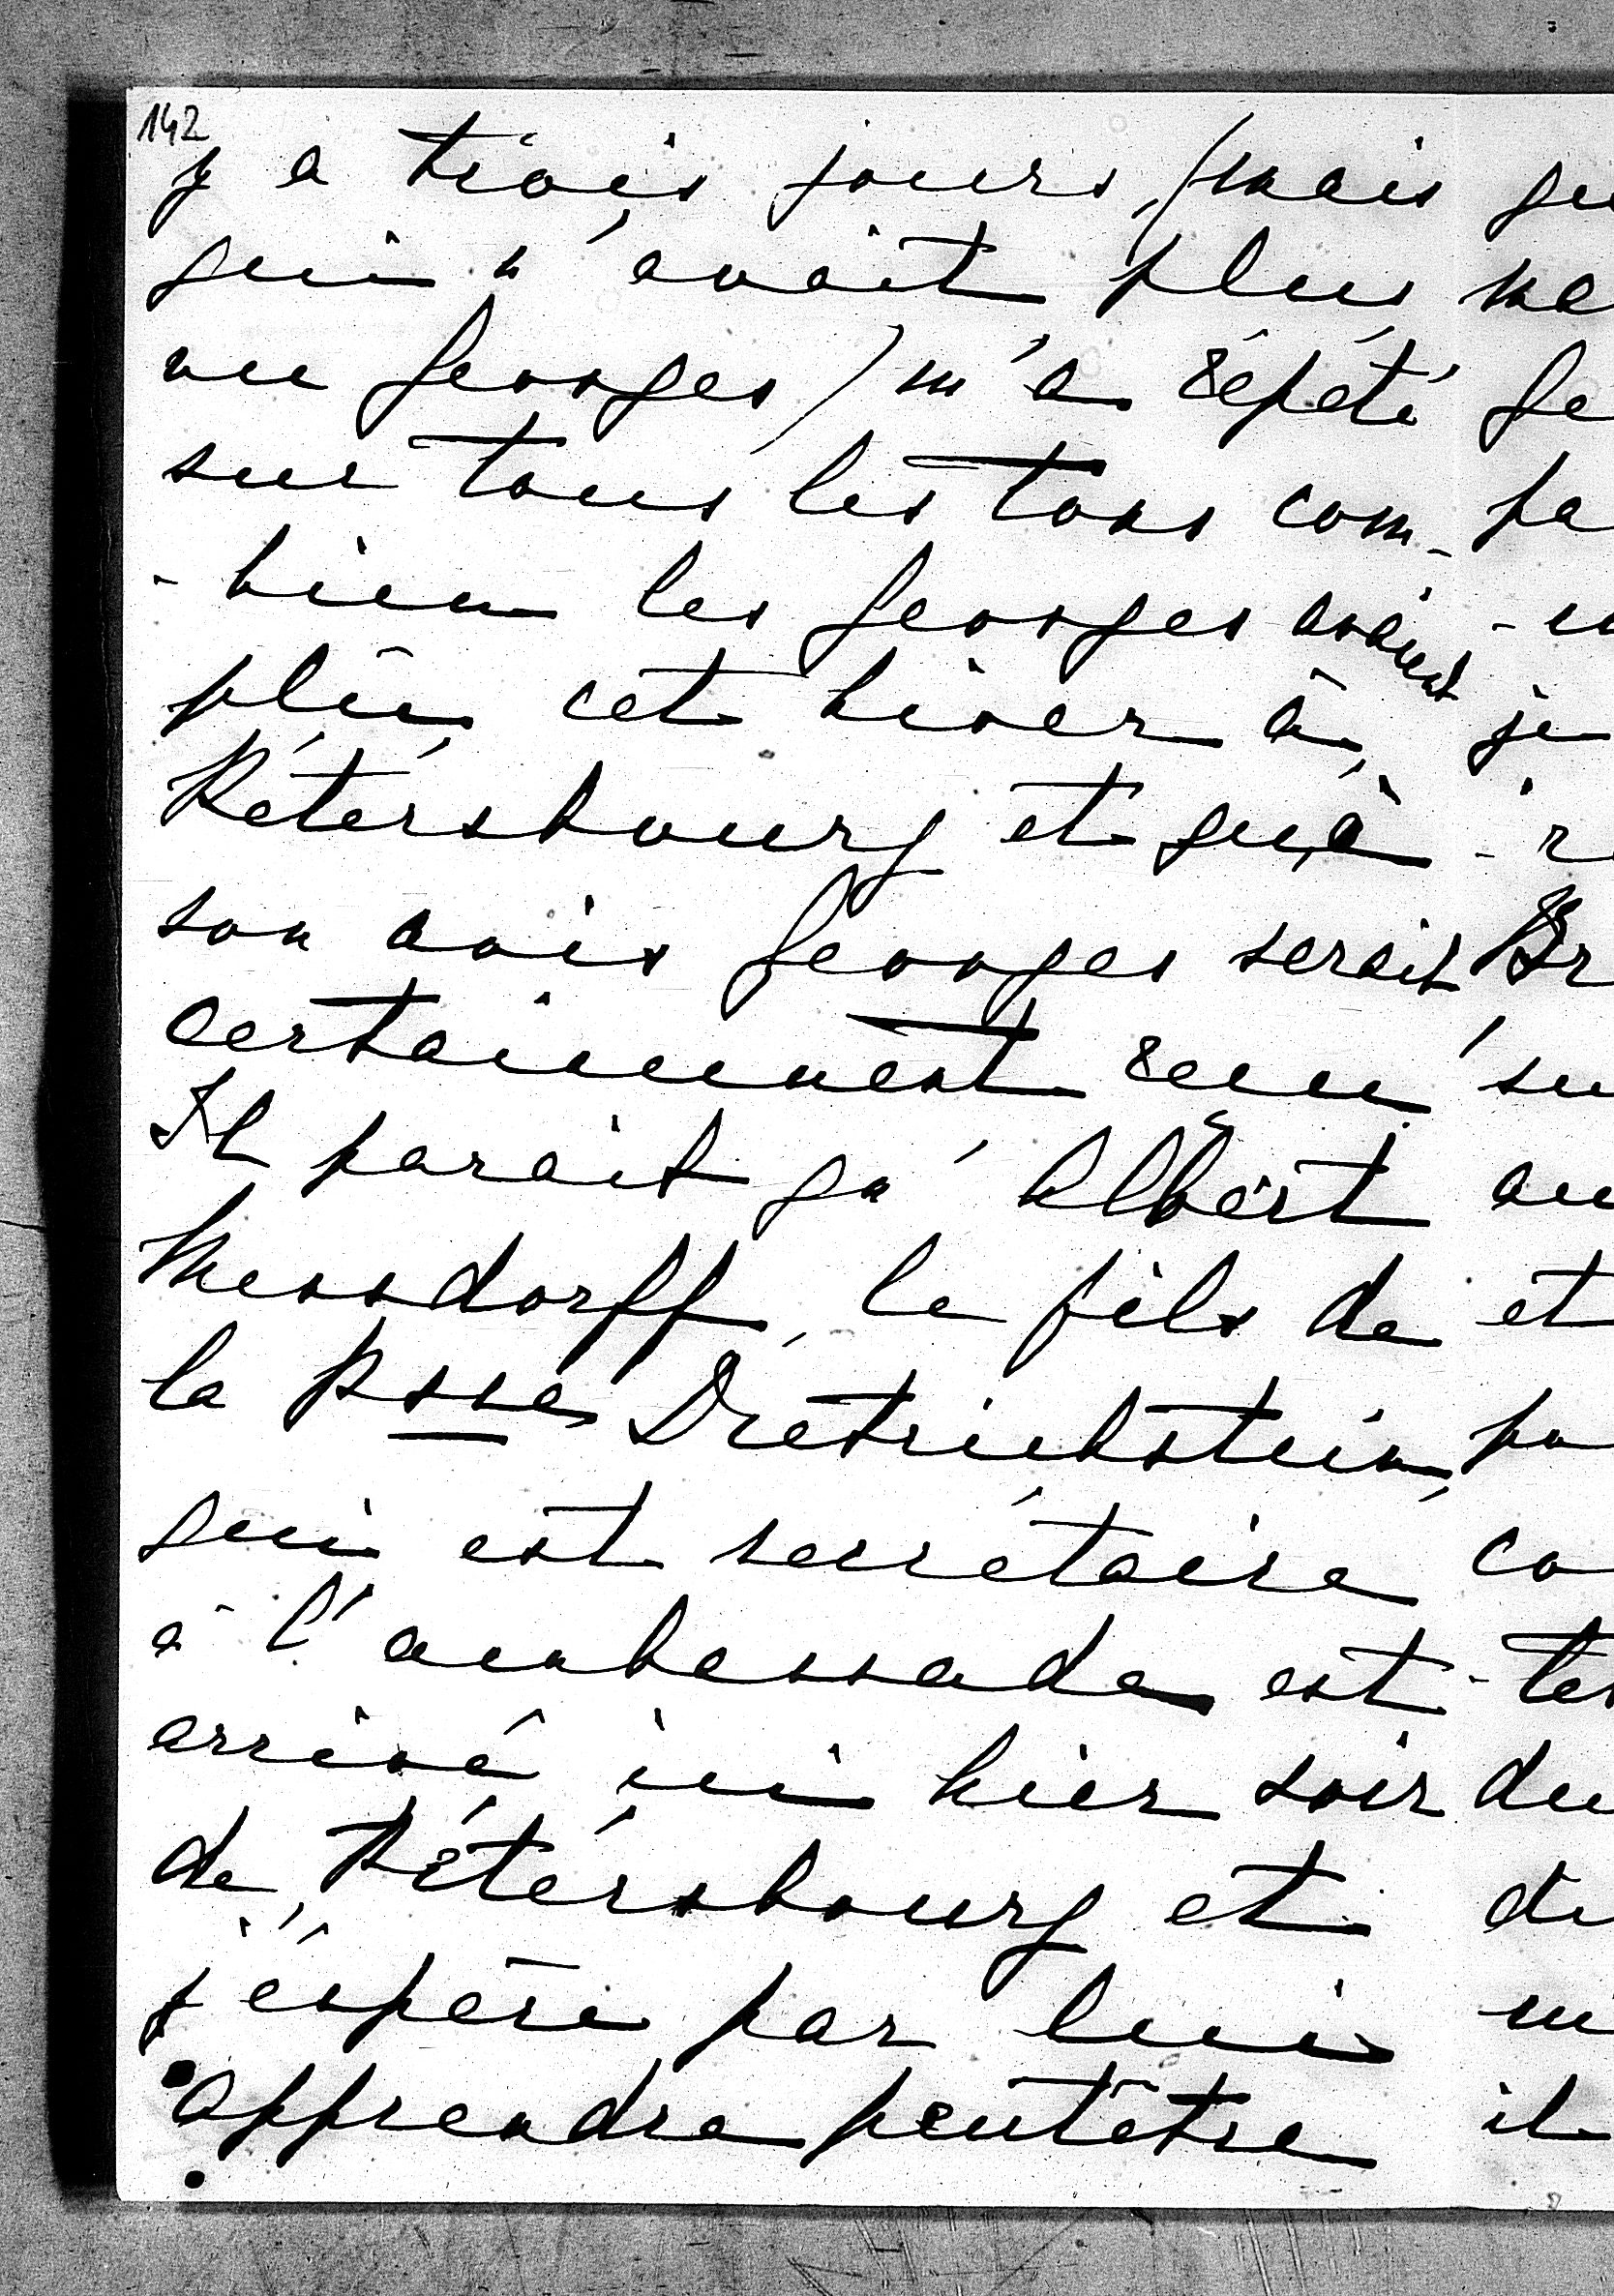 142
y a trois jours, (mais
qui n'avait plus
vu Georges) m'a répété
sur tous les tons com-
-bien les Georges avaient
plû cet hiver à
Pétérsbourg et qu'à
son avis Georges serait
certainement reçu.
Il parait qu' Albert
Mensdorff, le fils de
la Psse Dietrichstein,
qui est secrétaire
à l'ambassade est
arrivé ici hier soir
de Pétérsbourg et
j'éspère par lui
apprendre peutêtre